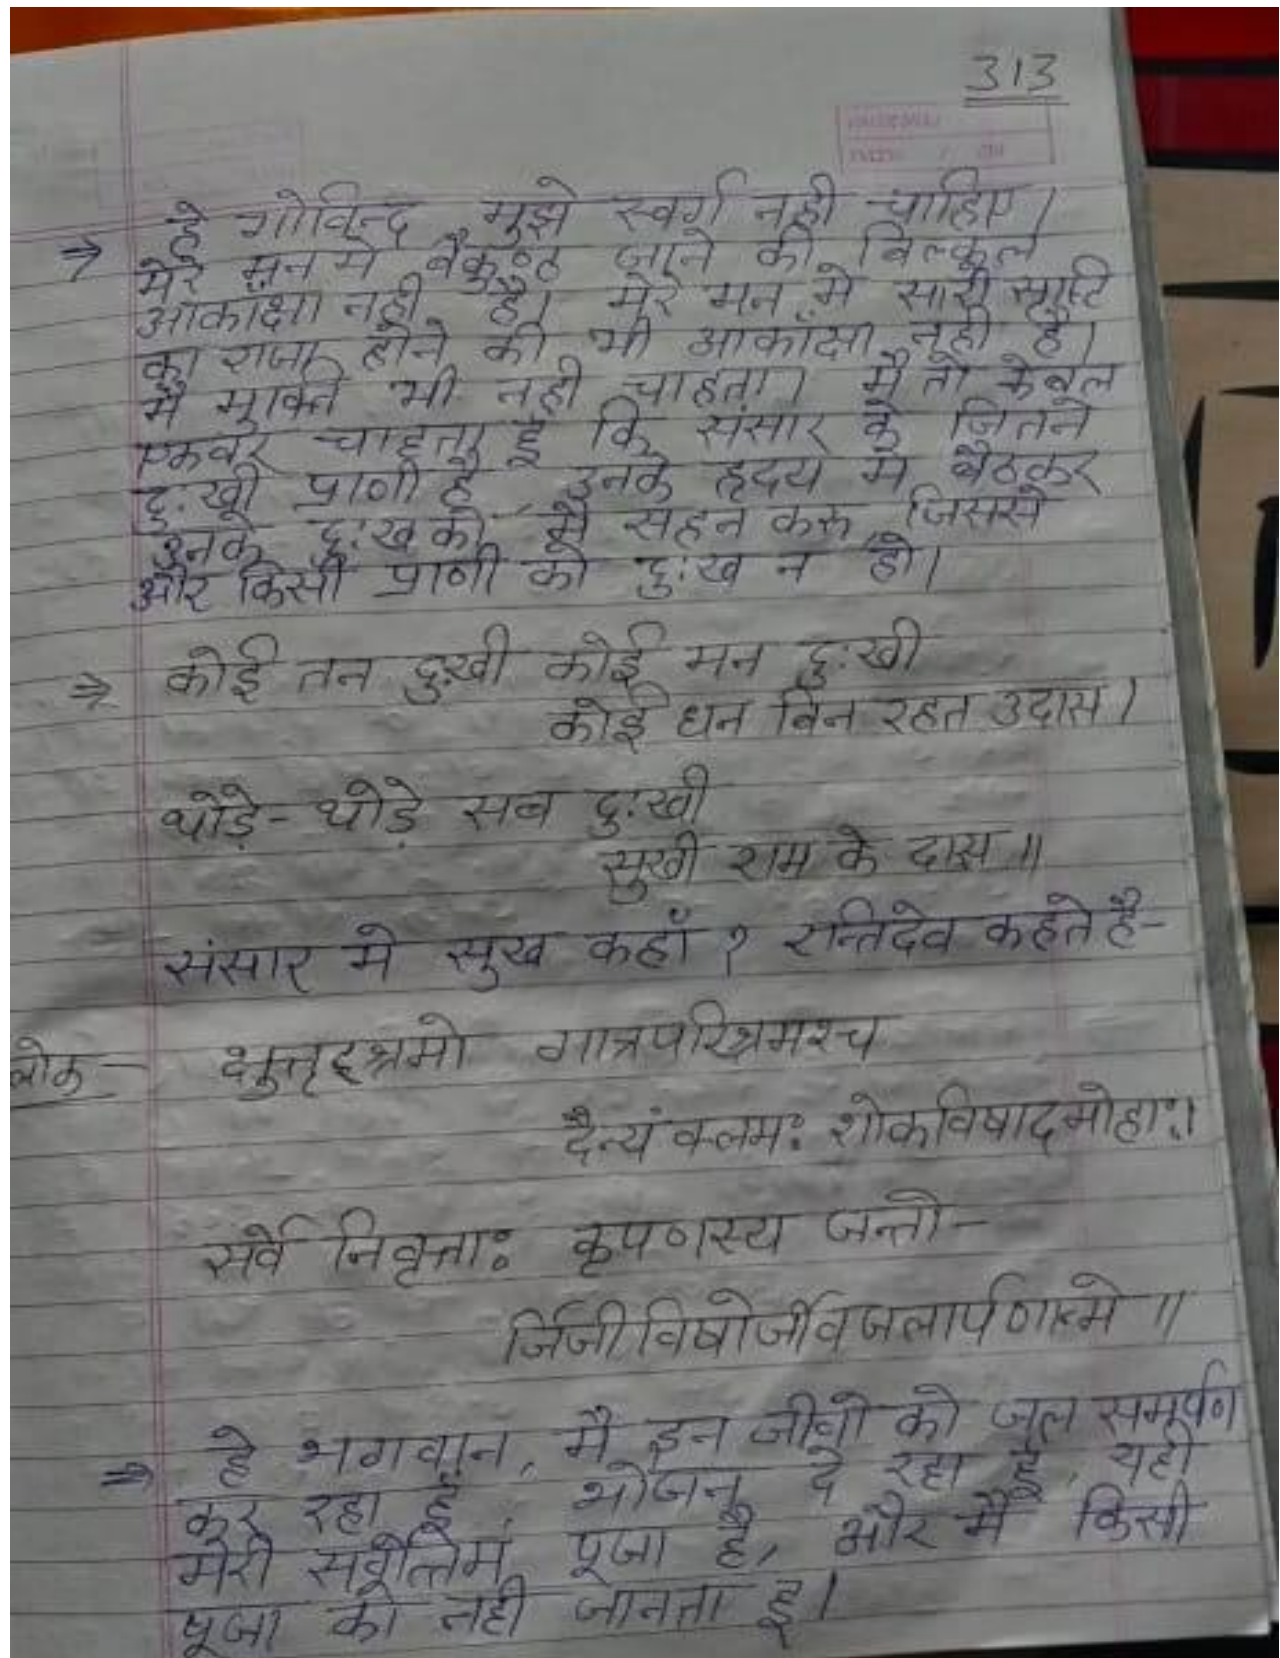 313
हे गोविन्द मुझे स्वर्ग नही चाहिए।
⇒ मेरे मन मे वैकुण्ठ जाने की बिल्कुल
आकांक्षा नही है। मेरे मन मे सारी सृष्टि
का राजा होने की भी आकांक्षा नही है।
मै मुक्ति भी नही चाहता। मै तो केवल
एकवर चाहता हूँ कि संसार के जितने
दु:खी प्राणी है, उनके हृदय मे बैठकर
उनके दु:ख को मै सहन करू जिससे
और किसी प्राणी को दु:ख न हो।
⇒ कोई तन दु:खी कोई मन दु:खी
कोई धन बिन रहत उदास।
थोड़े - थोड़े सब दु:खी
सुखी राम के दास॥
संसार मे सुख कहाँ ? रन्तिदेव कहते है-
लोक - क्षुत्तृट्श्रमो गात्रपरिश्रमश्च
दैन्यं क्लमः शोकविषादमोहाः।
सर्वे निवृत्ताः कृपणस्य जन्तो-
र्जिजीविषोर्जीवजलार्पणान्मे॥
हे भगवान, मै इन जीवो को जल समर्पण
⇒ कर रहा हूँ, भोजन दे रहा हूँ, यही
मेरी सर्वोत्तम पूजा है, और मैं किसी
पूजा को नही जानता हू।